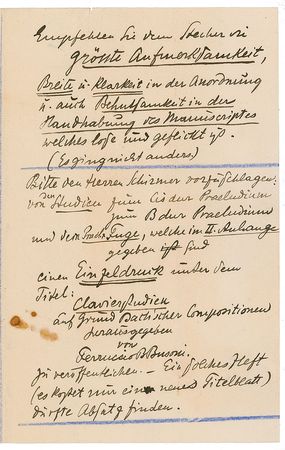 Empfehlen Sie dem Stecher die
grösste Aufmerksamkeit,
Breite u. Klarkeit in der Anordnung
u. auch Behutsamkeit in der
Handhabung des Manuscriptes
welches lose und geflickt ist.
(Es ging nicht anders.)
Bitte den Herren Schirmer vorzuschlagen:
von den Studien zum Cis dur Praeludium
zum B dur Praeludium
und dem Fuge, welche im II. Anhange
gegeben sind
einen Einzeldruck unter dem
Titel:
Clavierstudien
auf Grund Bach'scher Compositionen
herausgegeben
von
Ferruccio B. Busoni.
zu veröffentlichen. – Ein solches Heft
(es kostet nur ein neues Titelblatt)
dürfte Absatz finden.